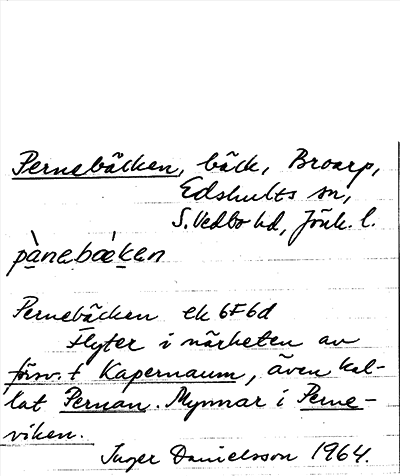 Pernebäcken, bäck, Broarp,
Edshults sn,
S. Vedbo hd, Jönk. l.
pànebæken
Pernebäcken ek 6F6d
Flyter i närheten av
försv. t Kapernaum, även kal-
lat Pernan. Mynnar i Perne-
viken.
Inger Danielsson 1964.